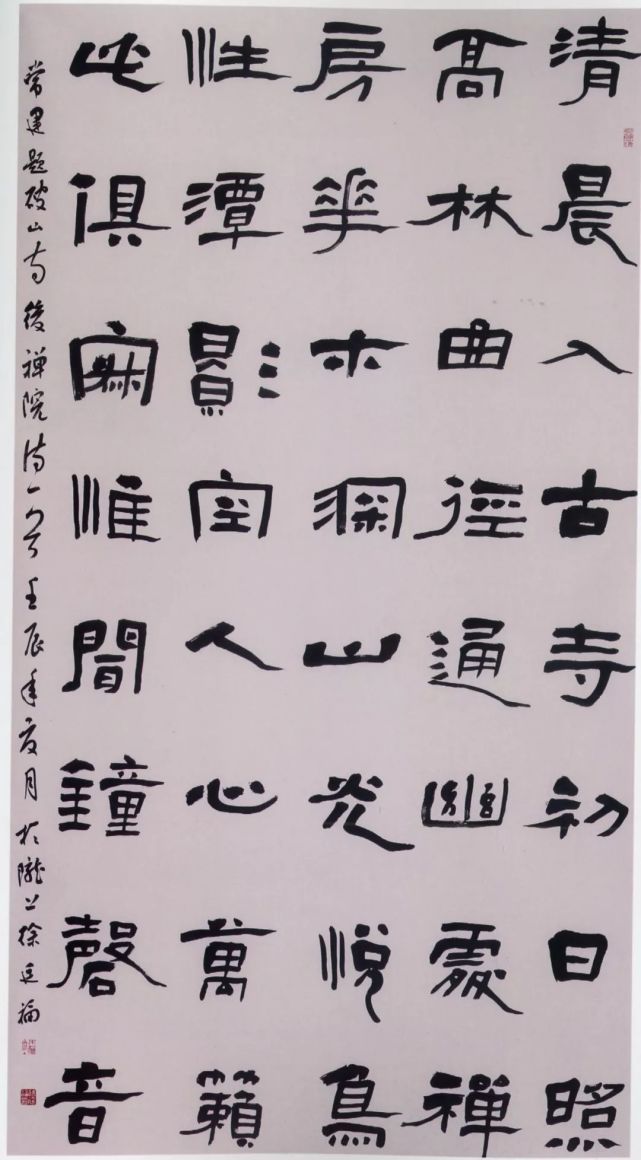 清晨入古寺初日照
髙林曲徑通幽處禪
房華木深山光悅鳥
性潭影空人心萬籟
此俱寂惟聞鐘磬音
常建題破山寺後禅院詩一首壬辰年夏月於隴上徐廷福